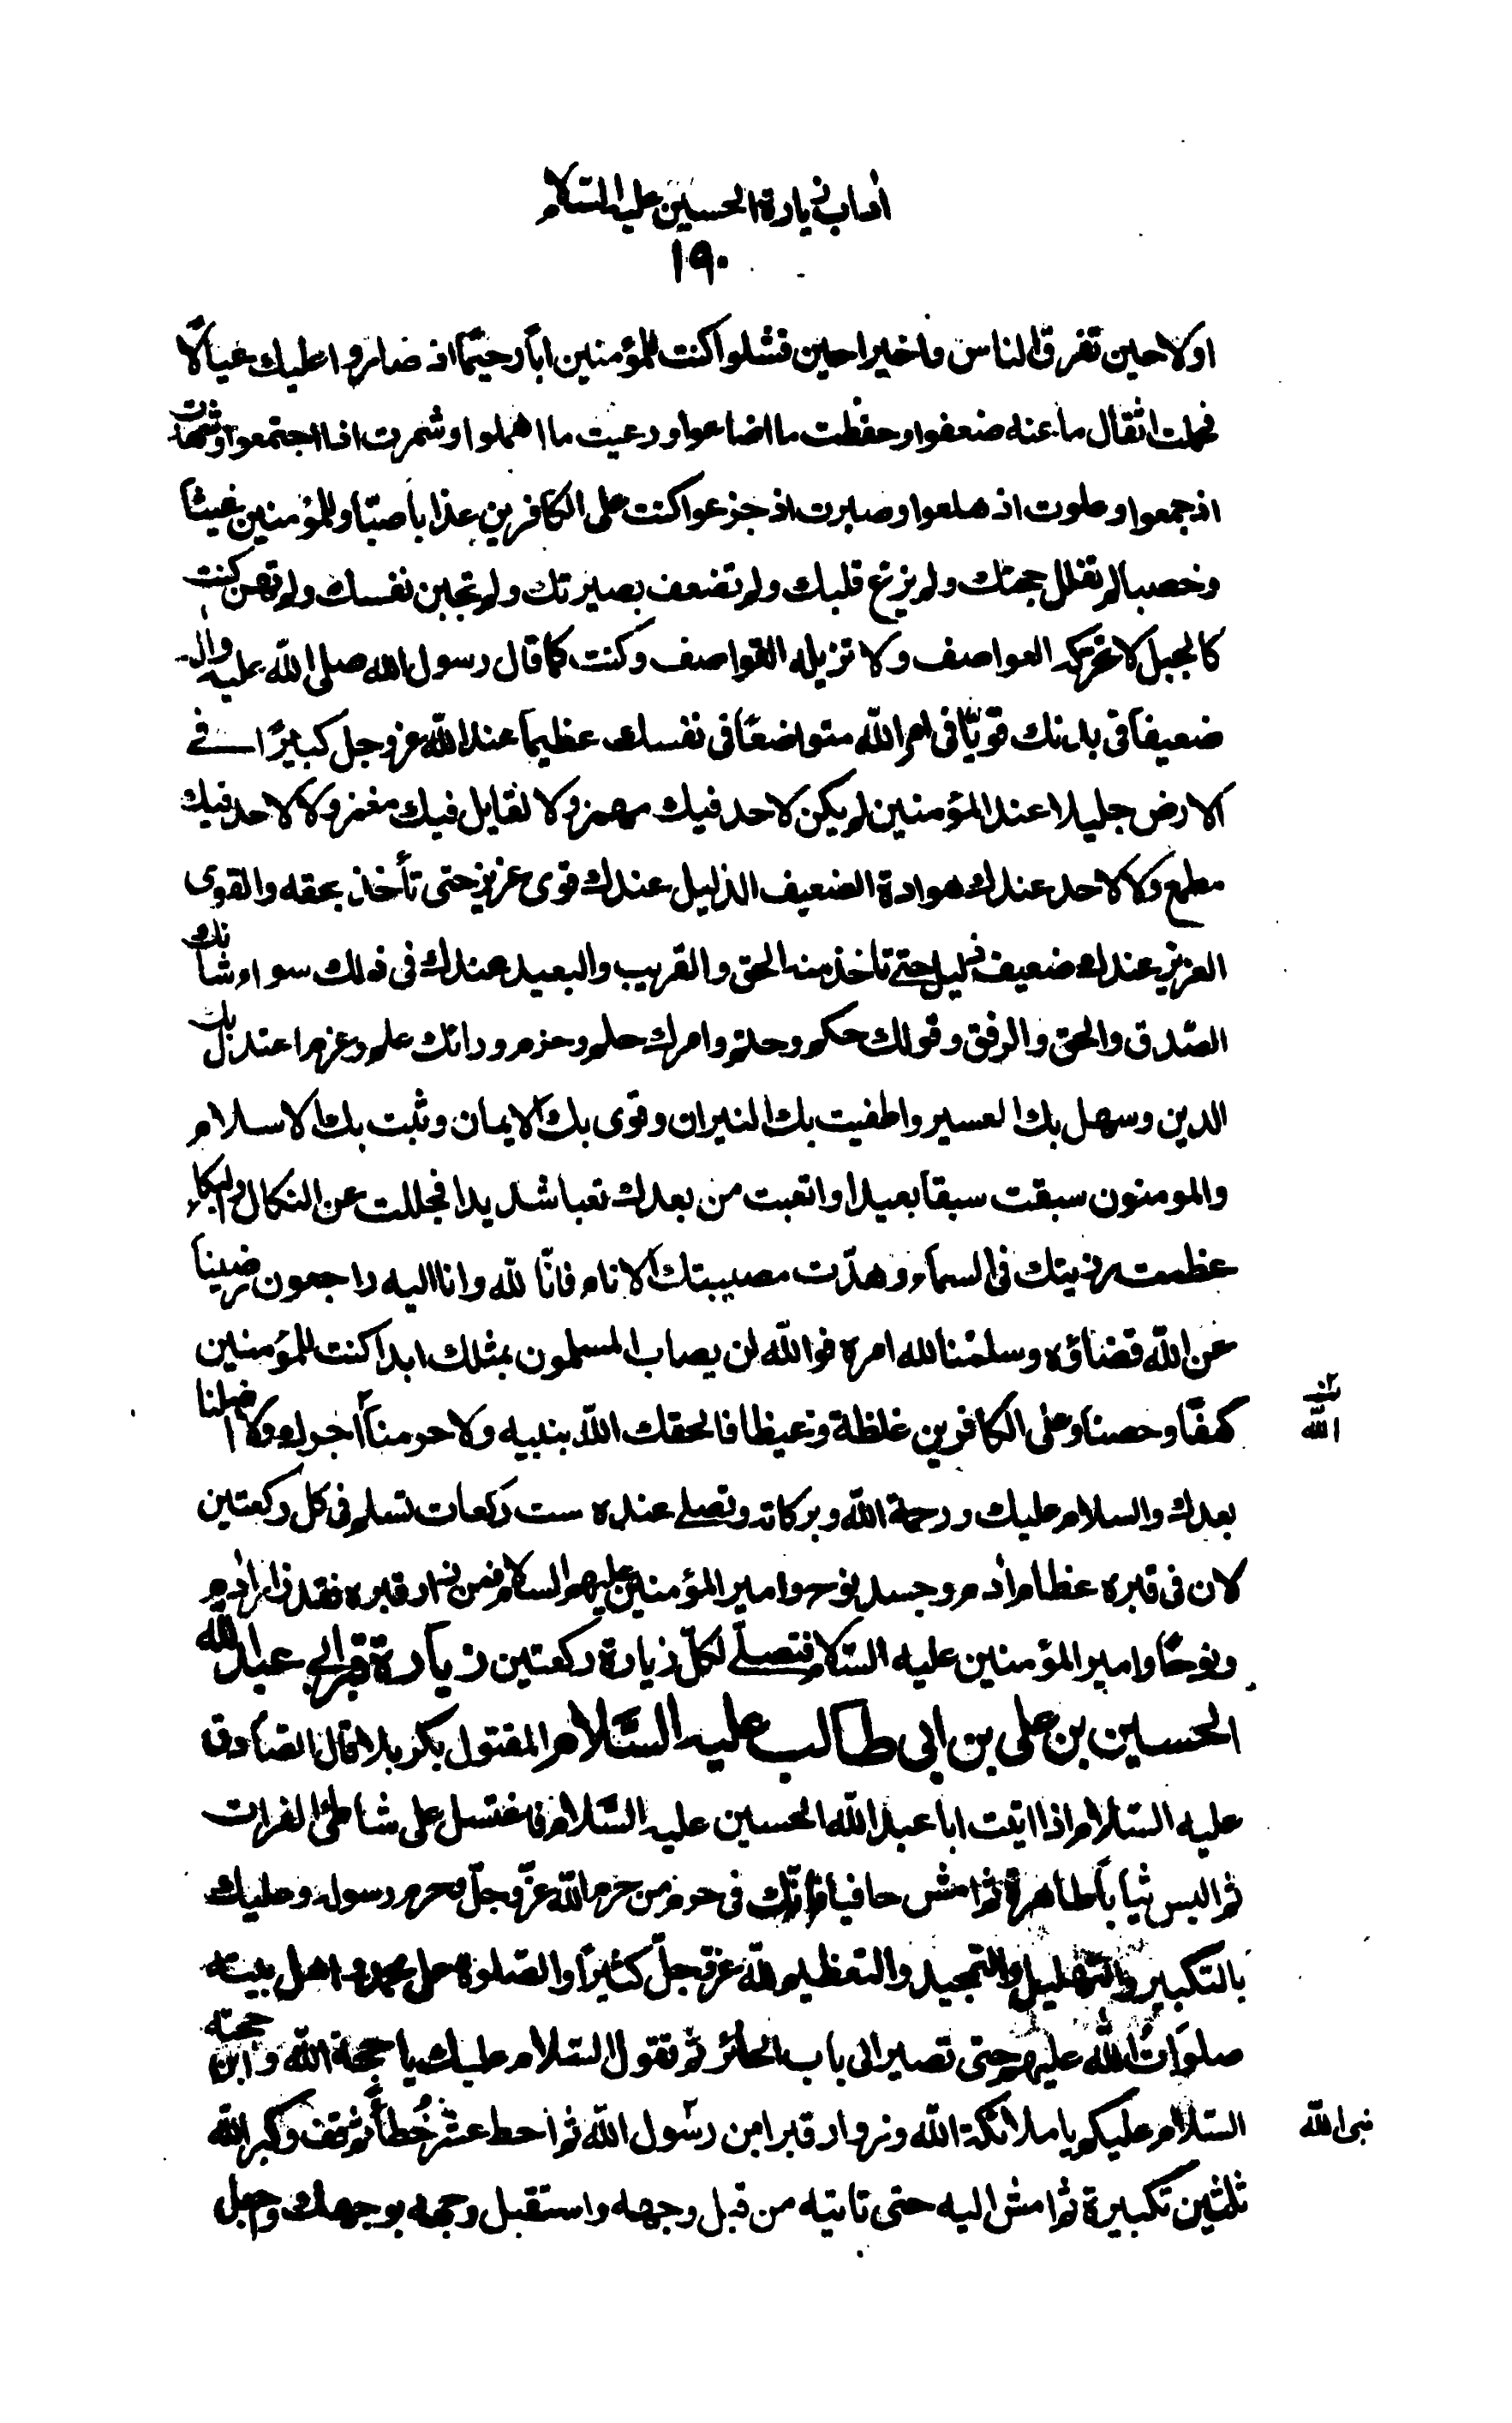 اداب زيارة الحسين عليه السلام
١٩٠
اولا حين تفرق الناس واخيرا حين فشلوا كنت للمؤمنين ابًا رحيمًا اذ صاروا عليك عيالًا
فحملت اثقال ما عنه ضعفوا وحفظت ما اضاعوا ورعيت ما اهملوا وشمرت اذا اجتمعوا وشهدت
اذ جمعوا وعلوت اذ هلعوا وصبرت اذ جزعوا كنت على الكافرين عذابًا صبّا وللمؤمنين غيثًا
وخصبا لم تفلل حجتك ولم يزغ قلبك ولم تضعف بصيرتك ولم تجبن نفسك ولم تهن كنت
كالجبل لا تحركه العواصف ولا تزيله القواصف وكنت كما قال رسول الله صلى الله عليه واله
ضعيفًا فى بدنك قويًّا فى امر الله متواضعًا فى نفسك عظيمًا عند الله عز وجل كبيرًا فى
الارض جليلا عند المؤمنين لم يكن لاحد فيك مهمز ولا لقايل فيك مغمز ولا لاحد فيك
مطمع ولا لاحد عندك هوادة الضعيف الذليل عندك قوى عزيز حتى تأخذ بحقه والقوى
العزيز عندك ضعيف ذليل حتى تاخذ منه الحق والقريب والبعيد عندك فى ذلك سواء شانك
الصّدق والحق والرفق وقولك حكم وحتم وامرك حلم وحزم ورائك علم وعزم اعتدل بك
الدين وسهل بك العسير واطفيت بك النيران وقوى بك الايمان وثبت بك الاسلام
والمومنون سبقت سبقا بعيدا واتعبت من بعدك تعبا شديدا فجللت عن النكال والبكاء
عظمت رزيتك فى السماء وهدّت مصيبتك الانام فانّا لله وانا اليه راجعون رضينا
عن الله قضاؤه وسلمنا لله امره فو الله لن يصاب المسلمون بمثلك ابدا كنت للمؤمنين
كهفًا وحصنا وعلى الكافرين غلظة وغيظا فالحقك الله بنبيه ولا حرمنا اجرك ولا اضلنا
الله
بعدك والسلام عليك ورحمة الله وبركاته وتصلى عنده ست ركعات تسلم فى كل ركعتين
لان فى قبره عظام ادم وجسد نوح وامير المؤمنين عليهم السلام فمن زار قبره فقد زار ادم
ونوحًا وامير المؤمنين عليه السّلام فتصلّى لكلّ زيارة ركعتين زيارة قبر ابى عبد الله
الحسين بن على بن ابى طالب عليه السّلام المقتول بكربلا قال الصّادق
عليه السّلام اذا اتيت ابا عبد الله الحسين عليه السّلام فاغتسل على شاطئ الفرات
ثم البس ثيابًا طاهرة ثم امش حافيا فانّك فى حرم من حرم الله عزّ وجلّ وحرم رسوله وعليك
بالتكبير والتهليل والتمجيد والتعظيم لله عزّ وجلّ كثيرًا والصّلوة على محمد واهل بيته
صلوَاتُ الله عليهم حتى تصير الى باب الحائر ثم تقول السّلام عليك يا حجة الله وابن حجته
السّلام عليكم يا ملائكة الله وزوار قبر ابن رسول الله ثم اخط عشر خُطًا ثم قف وكبر الله
نبى الله
ثلثين تكبيرة ثم امش اليه حتى تاتيه من قبل وجهه واستقبل وجهه بوجهك وتجعل